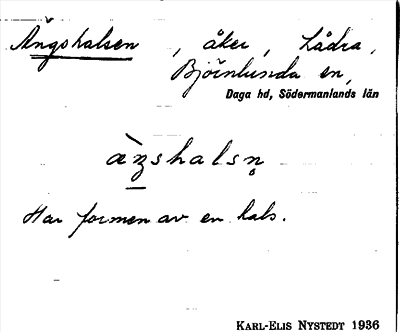 Ängshalsen, åker, Lådra,
Björnlunda sn,
Daga hd, Södermanlands län
äŋshalsn̥
Har formen av en hals.
KARL-ELIS NYSTEDT 1936